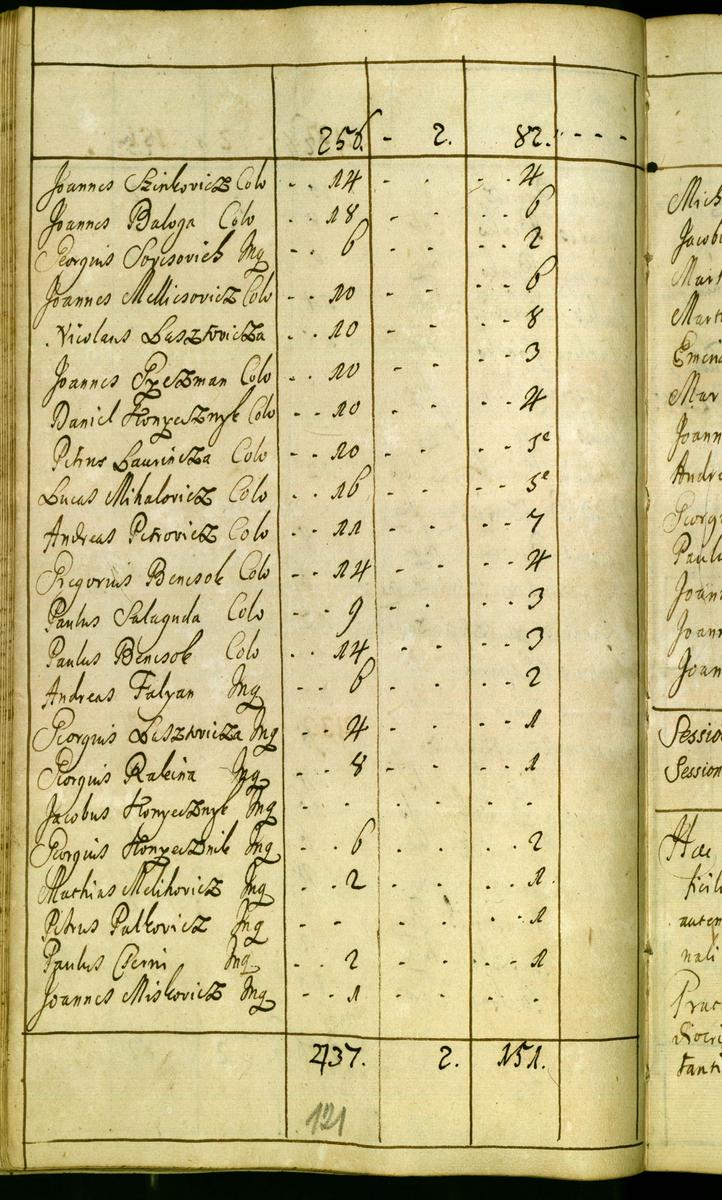 256. - 2. 82. - - - -
Joannes Szinkovicz Colo - - 14 - - - - 4
Joannes Baloga Colo - - 18 - - - - 6
Georgius Sorcsovich Inq - - 6 - - - - 2
Joannes Mellicsovicz Colo - - 10 - - - - 6
Nicolaus Laszkovicza - - 10 - - - - 8
Joannes Colo - - 10 - - - - 3
Daniel Konyecznyk Colo - - 10 - - - - 4
Petrus Laurincza Colo - - 10 - - - - 5
Lucas Mihalovicz Colo - - 16 - - - - 5
Andreas Petrovicz Colo - - 11 - - - - 7
Gregorius Bencsok Colo - - 14 - - - - 4
Paulus Salaguda Colo - - 9 - - - - 3
Paulus Bencsok Colo - - 14 - - - - 3
Andreas Falyan Inq - - 6 - - - - 2
Georgius Laszkovicza Inq - - 4 - - - - 1
Georgius Rakina Inq - - 8 - - - - 1
Jacobus Konyecznyk Inq - - - - - -
Georgius Konyecznik Inq - - 6 - - - - 2
Mathias Melihovicz Inq - - 2 - - - - 1.
Petrus Palkovicz Inq - - - - - - 1
Paulus Cserni Inq - - 2 - - - - 1
Joannes Miskovicz Inq - - 1 - - - -
437. 2. 151.
121
Jacobu
Mart
Mart
Mar
Joann
Andre
Georg
Paul
Joan
Joann
Joan
Sessio
Session
Hae
autem
nali
tanti